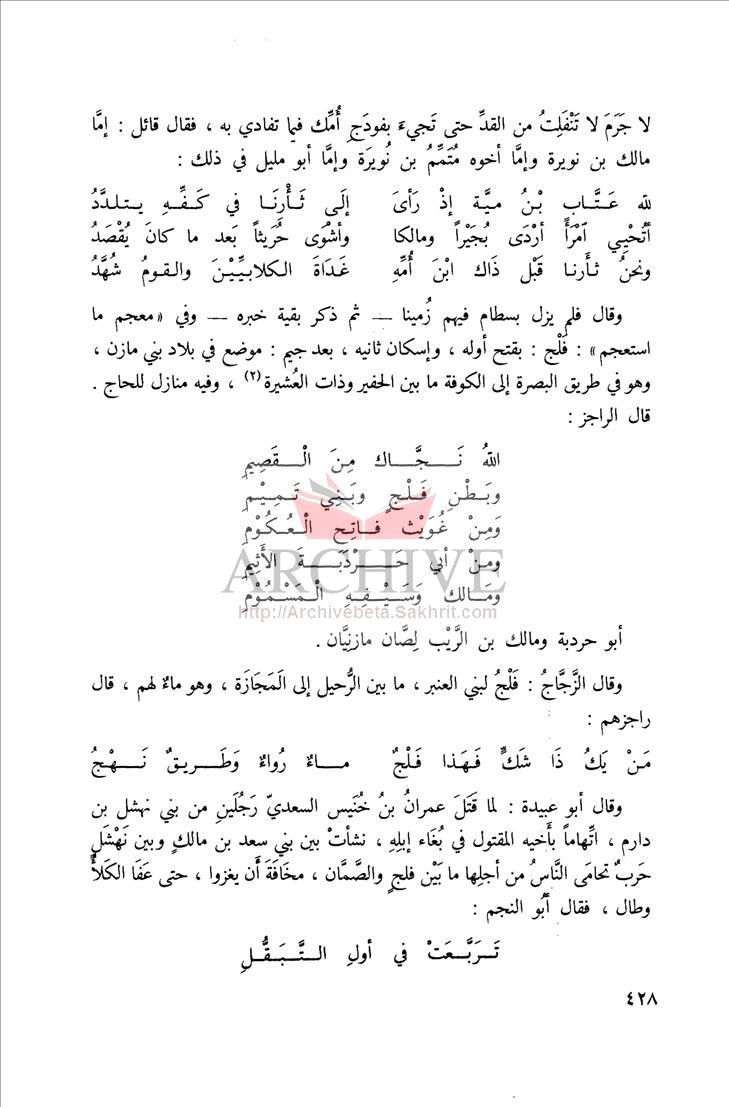 لا جَرَمَ لا تَنْفَلِتُ من القدِّ حتى تَجيءَ بفودَجِ أُمِّك فيما تفادي به ، فقال قائل : إمَّا
مالك بن نويرة وإمَّا أخوه مُتَمِّمُ بن نُويرَة وإمَّا أبو مليل في ذلك :
لله عَتَّابِ بْنُ ميَّة إذْ رَأى إلَى ثَأْرِنَا في كَفِّهِ يتلدَّدُ
أتُحْيِي ٱمْرَأً أرْدَى بُجَيْراً ومالكا وأشْوَى حُرَيثاً بَعد ما كانَ يُقْصَدُ
ونحنُ ثأرنا قَبْل ذَاك ابْنَ أُمِّهِ غَدَاةَ الكلابيِّيْنَ والقومُ شُهَّدُ
وقال فلم يزل بسطام فيهم زُمينا — ثم ذكر بقية خبره — وفي «معجم ما
استعجم» : فَلْج : بفتح أوله ، وإسكان ثانيه ، بعد جيم : موضع في بلاد بني مازن ،
وهو في طريق البصرة إلى الكوفة ما بين الحفير وذات العُشيرة (٢) ، وفيه منازل للحاج .
قال الراجز :
اللهُ نَجَّاك مِنَ الْقَصِيمِ
وبَطْنِ فَلْجٍ وبَنِي تَمِيْمِ
ARCHIVE
ومِنْ غُوَيْث فاتِحِ الْعُكُوْمِ
ومِنْ أبي حَرْدَبَةَ الأَثِيمِ
ومالك وَسَيْفِهِ الْمَسْمُوْمِ
http://Archivebeta.Sakhrit.com
أبو حردبة ومالك بن الرَّيْب لِصَّان مازنِيَّان .
وقال الزَّجَّاجُ : فَلْجُ لبني العنبر ، ما بين الرُّحيل إلى الَمَجَازَة ، وهو ماءٌ لهم ، قال
راجزهم :
مَنْ يَكُ ذَا شَكٍّ فَهَذا فَلْجُ ماءٌ رُواءٌ وَطَريقٌ نَهْجُ
وقال أبو عبيدة : لما قَتَلَ عمرانُ بنُ خُنَيس السعديّ رَجُلَينِ من بني نهشل بن
دارم ، اتِّهاماً بأَخيه المقتول في بُغَاء إبلِهِ ، نشأتْ بين بني سعد بن مالكٍ وبين نَهْشَلٍ
حَربٌ تحامَى النَّاسُ من أجلِها ما بَيْن فلجٍ والصَّمَّان ، مخافَةَ أَن يغزوا ، حتى عَفَا الكَلأُ
وطال ، فقال أبُو النجم :
تَرَبَّعَتْ في أولِ التَّبَقُّلِ
٤٢٨